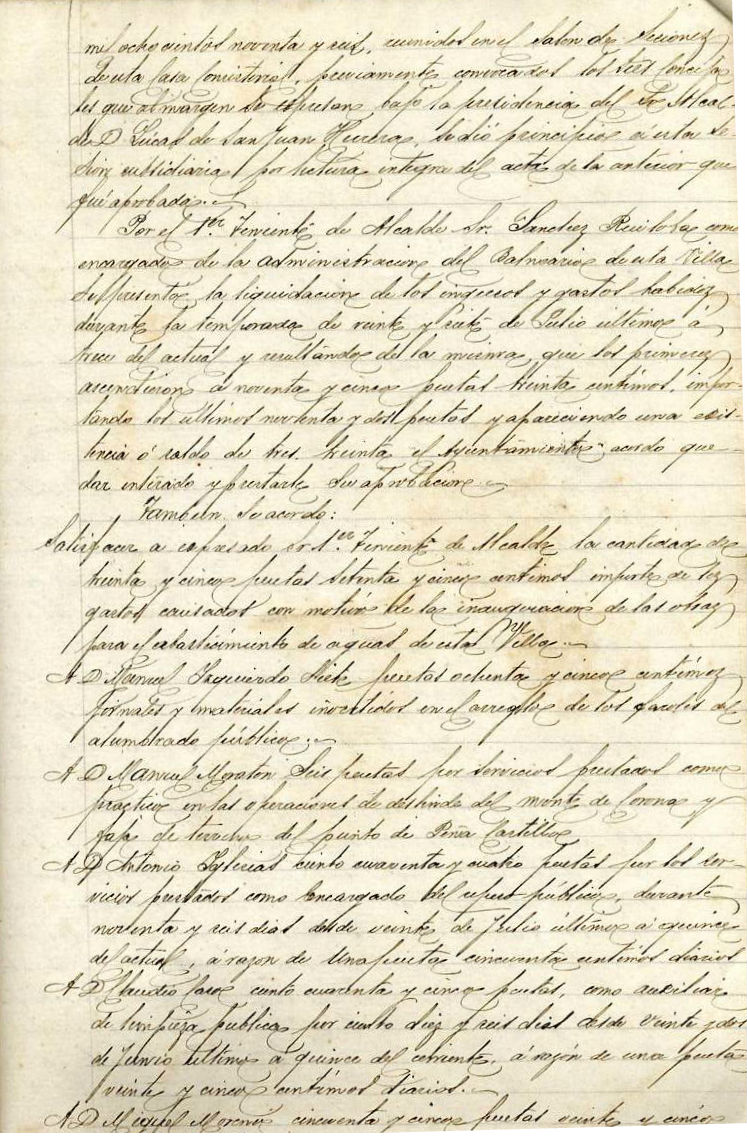 mil ochocientos noventa y seis, reunidos en el Salon de Sesiones
de esta Casa Consistorial, previamente convocados los Sres Conceja
les que al margen se espresan bajo la presidencia del Sr Alcal-
de D. Lucas de San Juan Herrera, se dió principio a esta se-
sion subsidiaria por lectura integra del acta de la anterior que
fué aprobada.
Por el 1.er Teniente de Alcalde Sr. Sanchez como
encargado de la administracion del Balneario de esta Villa
se presentó la liquidacion de los ingresos y gastos habidos
durante la temporada de veinte y siete de Julio último á
trece del actual y resultando de la misma, que los primeros
ascendieron á noventa y cinco pesetas treinta centimos, impor-
tando los ultimos noventa y dos pesetas y apareciendo una exis-
tencia ó saldo de tres treinta el Ayuntamiento acordo que-
dar enterado y prestarle su aprobacion.
Tambien se acordo:
Satisfacer a espresado Sr 1.er Teniente de Alcalde la cantidad de
treinta y cinco pesetas setenta y cinco centimos importe de los
gastos causados con motivo de la inauguracion de las obras
para el abastecimiento de aguas de esta Villa.
A D Manuel Izquierdo siete pesetas ochenta y cinco centimos
jornales y materiales invertidos en el arreglo de los faroles del
alumbrado público.
A D Manuel Moraton seis pesetas por servicios prestados como
practico en las operaciones de deslinde del monte de Corona y
de terreno del punto de Peña Castillo
A D Antonio Iglesias ciento cuarenta y cuatro pesetas por los ser-
vicios prestados como encargado del peso publico, durante
noventa y seis dias desde veinte de Julio último á quince
del actual, á razon de una peseta cincuenta centimos diarios
A D Claudio ciento cuarenta y cinco pesetas, como auxiliar
de limpieza publica por ciento diez y seis dias desde veinte y dos
de Junio ultimo a quince del corriente, á razón de una peseta
veinte y cinco centimos diarios.
A D Miguel Moreno cincuenta y cinco pesetas veinte y cinco